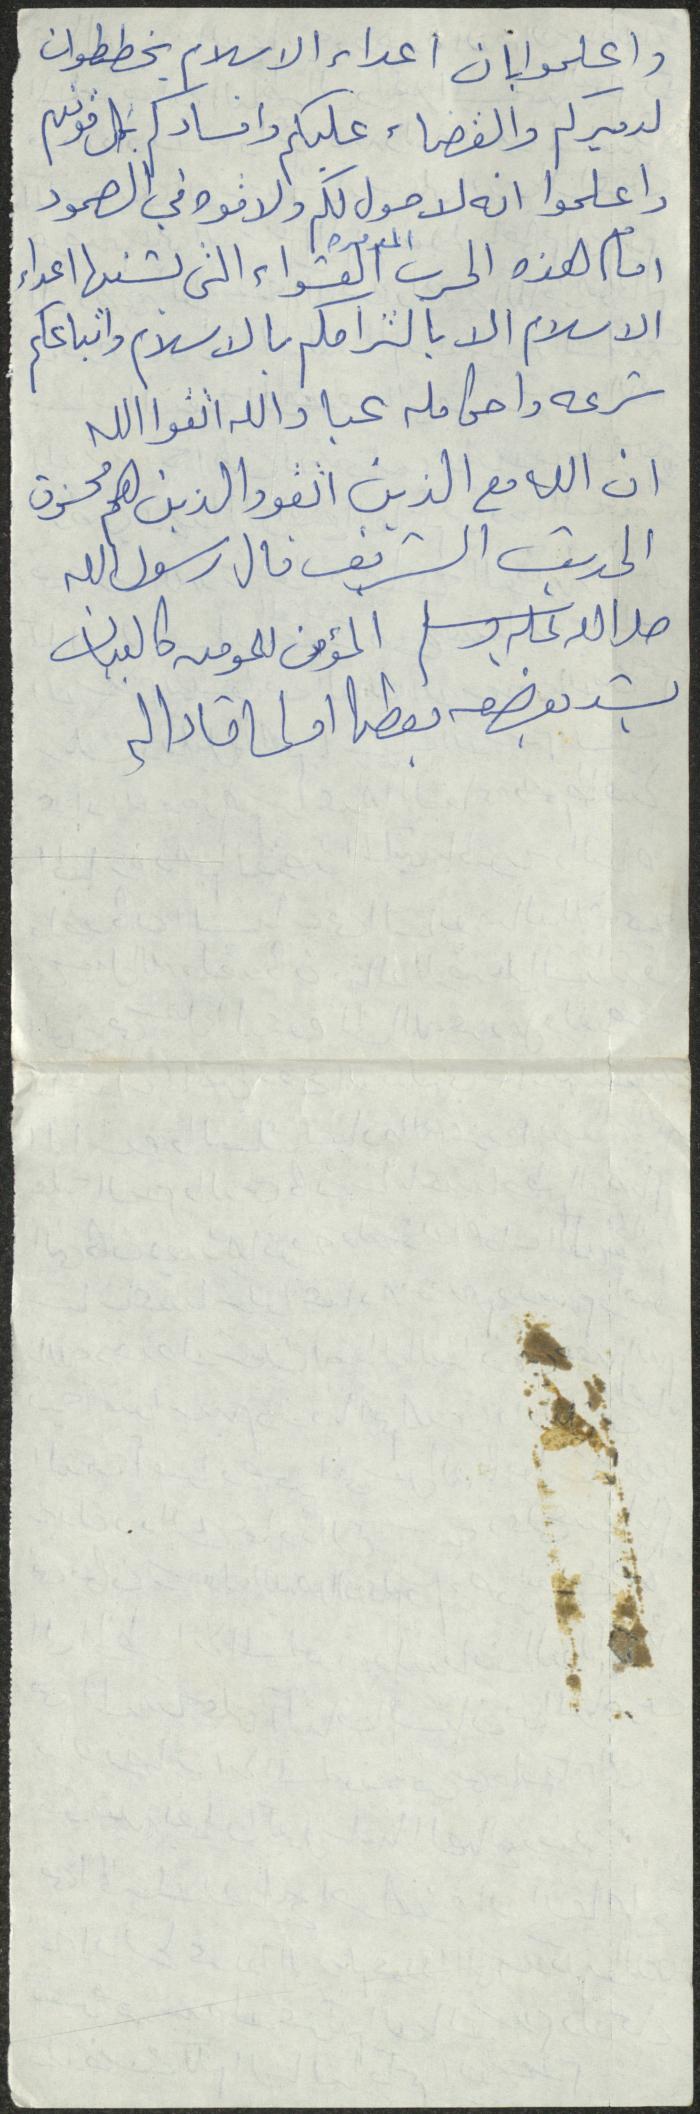 واعلموا بان اعداء الاسلام يخططون
لدميركم والقضاء عليكم وافسادكم بكل قوتهم
واعلموا انه لا حول لكم ولا قوه في الصمود
امام هذه الحرب المدمره القشواء التي تشنها اعداء
الاسلام الا بالتزامكم بالاسلام واتباعكم
شرعه واحكامه عباد الله اتقوا الله
ان الله مع الذين اتقو والذين هم محسنون
الحديث الشريف قال رسول الله
صلى الله عليه وسلم المؤمن للمومن كالبنيان
يشد بعضه بعظا او كما قال